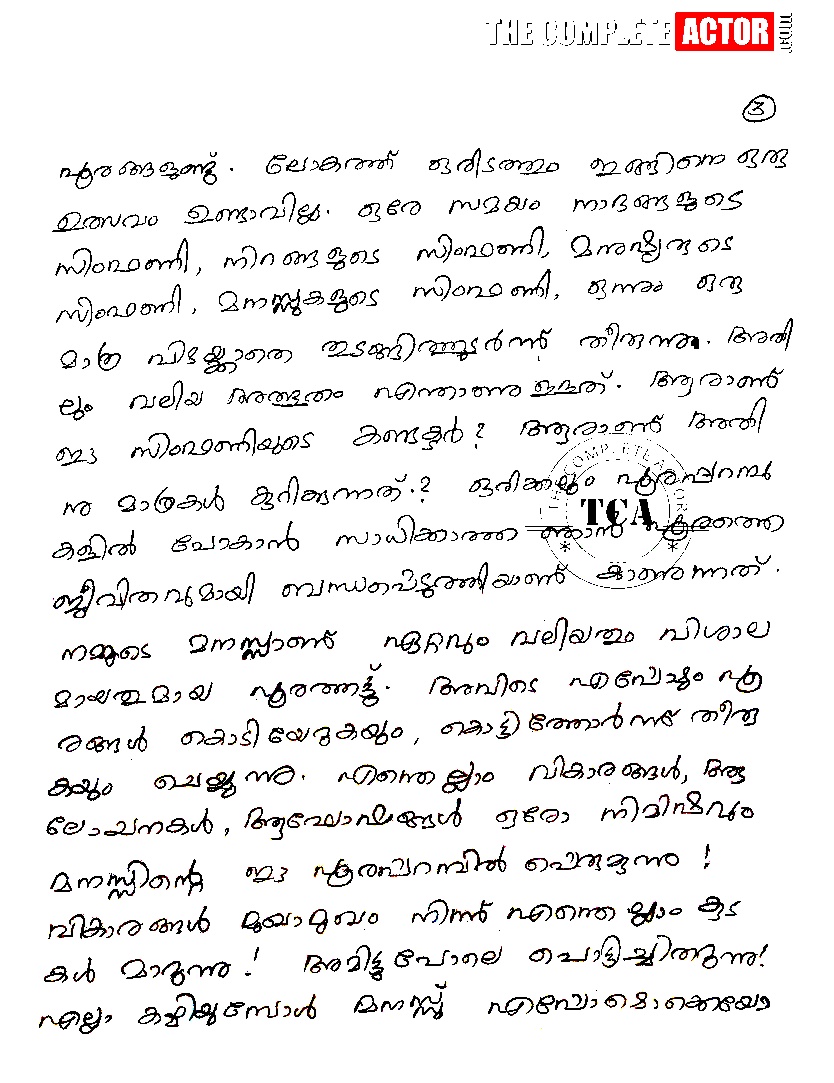 THE COMPLETE ACTOR
3
പൂരങ്ങളുണ്ട്. ലോകത്ത് ഒരിടത്തും ഇങ്ങിനെ ഒരു
ഉത്സവം ഉണ്ടാവില്ല. ഒരേ സമയം നാദങ്ങളുടെ
സിംഫണി, നിറങ്ങളുടെ സിംഫണി, മനുഷ്യരുടെ
സിംഫണി, മനസ്സുകളുടെ സിംഫണി, ഒന്നും ഒരു
മാത്ര പിടയ്ക്കാതെ തുടങ്ങിത്തുടർന്ന് തീരുന്നു. അതി
ലും വലിയ അത്ഭുതം എന്താണുള്ളത്. ആരാണ്
ഈ സിംഫണിയുടെ കണ്ടക്ടർ? ആരാണ് അതി
നു മാത്രകൾ കുറിക്കുന്നത്.? ഒരിക്കലും പൂരപ്പറമ്പു
കളിൽ പോകാൻ സാധിക്കാത്ത ഞാൻ പൂരത്തെ
ജീവിതവുമായി ബന്ധപ്പെടുത്തിയാണ് കാണുന്നത്.
നമ്മുടെ മനസ്സാണ് ഏറ്റവും വലിയതും വിശാല
മായതുമായ പൂരത്തട്ട്. അവിടെ എപ്പോഴും പൂ
രങ്ങൾ കൊടിയേറുകയും, കൊട്ടിത്തോർന്ന് തീരു
കയും ചെയ്യുന്നു. എന്തെല്ലാം വികാരങ്ങൾ, ആ
ലോചനകൾ, ആഘോഷങ്ങൾ ഒരോ നിമിഷവും
മനസ്സിന്റെ ഈ പൂരപ്പറമ്പിൽ പെരുകുന്നു!
വികാരങ്ങൾ മുഖാമുഖം നിന്ന് എന്തെല്ലാം കുട
കൾ മാറുന്നു! അമിട്ടുപോലെ പൊട്ടിച്ചിതറുന്നു!
എല്ലാ കഴിയുമ്പോൾ മനസ്സ് എപ്പോഴൊക്കെയോ
THE COMPLETE ACTOR
TCA